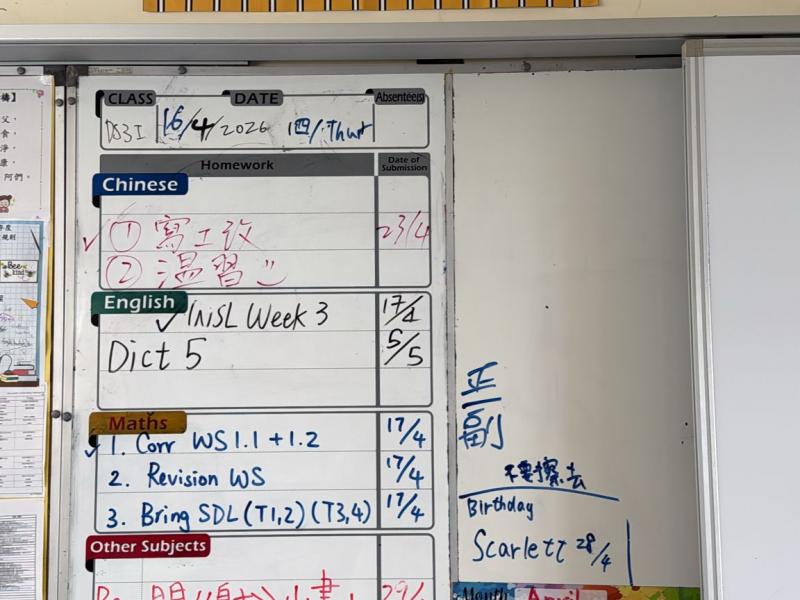 CLASS DATE Absentee(s)
DS3I 16/4/2026 (四) Thur
Homework Date of Submission
Chinese
✓ ① 寫工改 23/4
② 溫習
English
✓ InisL Week 3 17/4
Dict 5 5/5
Maths
✓ 1. Corr WS 1.1 + 1.2 17/4
2. Revision WS 17/4
3. Bring SDL (T1,2) (T3,4) 17/4
Other Subjects
正
副
不要擦去
Birthday
Scarlett 28/4
Month April
Bee kind